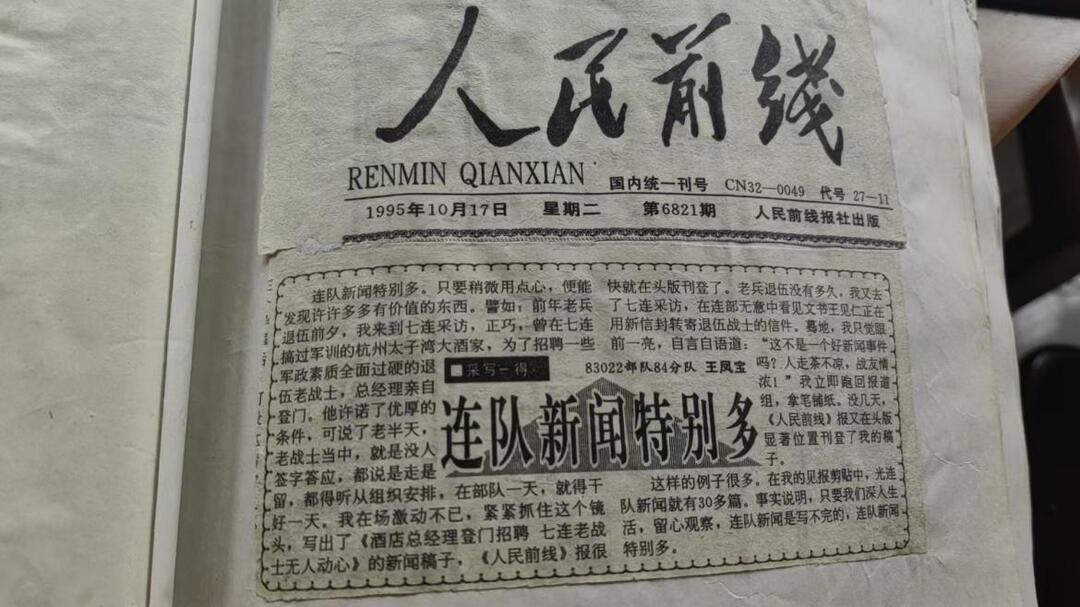 人民前线
RENMIN QIANXIAN 国内统一刊号 CN32—0049 代号 27—11
1995年10月17日 星期二 第6821期 人民前线报社出版
■采写一得
连队新闻特别多
83022部队84分队 王凤宝
连队新闻特别多。只要稍微用点心，便能
发现许许多多有价值的东西。譬如：前年老兵
退伍前夕，我来到七连采访，正巧，曾在七连
搞过军训的杭州太子湾大酒家，为了招聘一些
军政素质全面过硬的退
伍老战士，总经理亲自
登门，他许诺了优厚的
条件，可说了老半天，
老战士当中，就是没人
签字答应，都说是走是
留，都得听从组织安排，在部队一天，就得干
好一天。我在场激动不已，紧紧抓住这个镜
头，写出了《酒店总经理登门招聘 七连老战
士无人动心》的新闻稿子，《人民前线》报很
快就在头版刊登了。老兵退伍没有多久，我又去
了七连采访，在连部无意中看见文书王见仁正在
用新信封转寄退伍战士的信件。蓦地，我只觉眼
前一亮，自言自语道：“这不是一个好新闻事件
吗？人走茶不凉，战友情
浓！”我立即跑回报道
组，拿笔铺纸。没几天，
《人民前线》报又在头版
显著位置刊登了我的稿
子。
这样的例子很多。在我的见报剪贴中，光连
队新闻就有30多篇。事实说明，只要我们深入生
活，留心观察，连队新闻是写不完的，连队新闻
特别多。